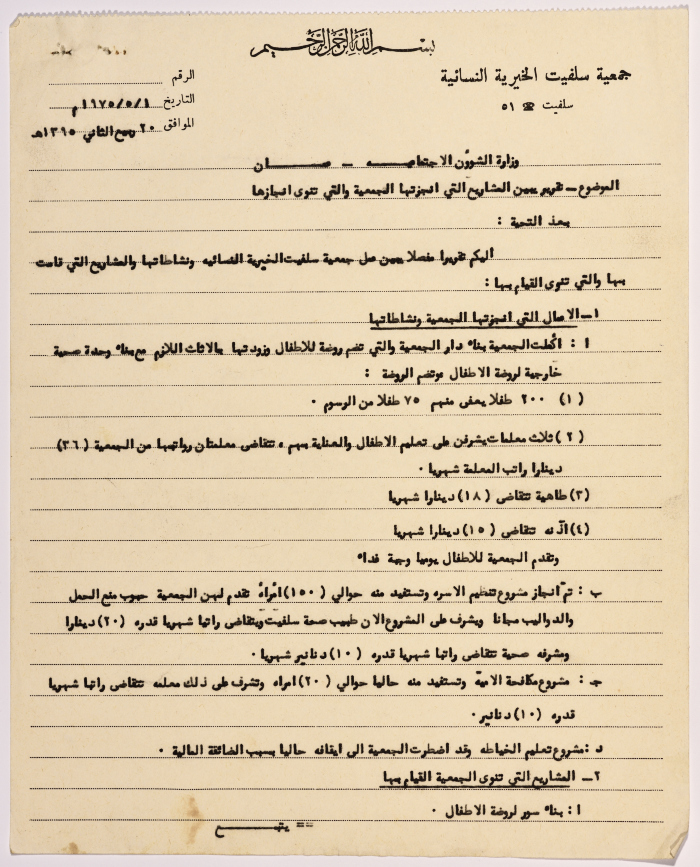 بسم الله الرحمن الرحيم
جمعية سلفيت الخيرية النسائية
سلفيت ☎ ٥١
الرقم
التاريخ ١٩٧٥/٥/١م
الموافق ٢٠ ربيع الثاني ١٣٩٥هـ
وزارة الشؤون الاجتماعيـــه ــ عمـــــــان
الموضوع ــ تقرير يبين المشاريع التي انجزتها الجمعية والتي تنوى انجازها
بعد التحية :
اليكم تقريرا مفصلا يبين عمل جمعية سلفيت الخيرية النسائيه ونشاطاتها والمشاريع التي قامت
بها والتي تنوى القيام بها :
١ــ الاعمال التي انجزتها الجمعية ونشاطاتها
أ : أكملت الجمعية بناء دار الجمعية والتي تضم روضة للاطفال وزودتها بالاثاث اللازم مع بناء وحدة صحية
خارجية لروضة الاطفال وتضم الروضة :
(١) ٢٠٠ طفلا يعفى منهم ٧٥ طفلا من الرسوم ٠
(٢) ثلاث معلمات يشرفن على تعليم الاطفال والعناية بهم ، تتقاضى معلمتان رواتبها من الجمعية (٣٦)
دينارا راتب المعلمة شهريا ٠
(٣) طاهية تتقاضى (١٨) دينارا شهريا
(٤) آذنه تتقاضى (١٥) دينارا شهريا
وتقدم الجمعية للاطفال يوميا وجبة غداء
ب : تم انجاز مشروع تنظيم الاسره وتستفيد منه حوالي (١٥٠) امرأة تقدم لهن الجمعية حبوب منع الحمل
والدواليب مجانا ويشرف على المشروع الان طبيب صحة سلفيت ويتقاضى راتبا شهريا قدره (٢٠) دينارا
ومشرفه صحية تتقاضى راتبا شهريا قدره (١٠) دنانير شهريا ٠
جـ : مشروع مكافحة الامية وتستفيد منه حاليا حوالي (٢٠) امراه وتشرف على ذلك معلمه تتقاضى راتبا شهريا
قدره (١٠) دنانير ٠
د : مشروع تعليم الخياطه وقد اضطرت الجمعية الى ايقافه حاليا بسبب الضائقة المالية ٠
٢ــ المشاريع التي تنوى الجمعية القيام بها
أ : بناء سور لروضة الاطفال ٠
== يتبـــــــع